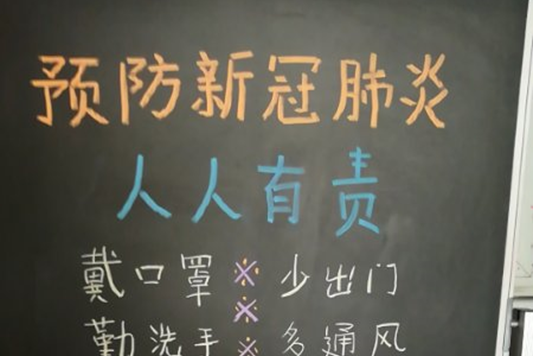 预防新冠肺炎
人人有责
戴口罩※少出门
※
勤洗手※多通风